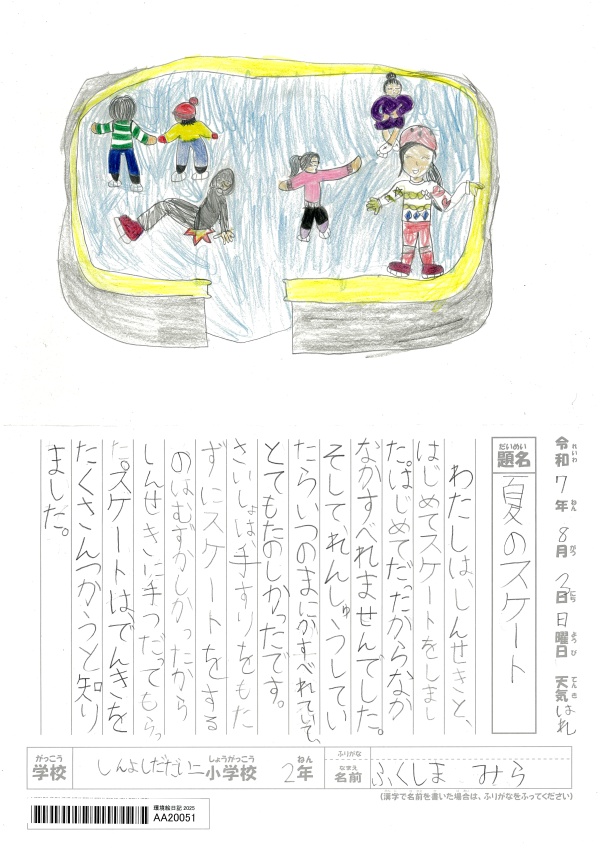 令和7年8月3日日曜日 天気はれ
れいわ ねん がつ にち ようび てんき
だいめい
題名 夏のスケート
わたしは、しんせきと、
はじめてスケートをしまし
た。はじめてだったからなか
なかすべれませんでした。
そして、れんしゅうしてい
たらいつのまにかすべれていて、
とてもたのしかったです。
さいしょは手すりをもた
ずにスケートをする
のはむずかしかったから
しんせきに手つだってもらっ
た。スケートは、でんきを
たくさんつかうと知り
ました。
がっこう しょうがっこう ねん ふりがな なまえ
学校 しんよしだだい二小学校 2年 名前 ふくしま みら
(漢字で名前を書いた場合は、ふりがなをふってください)
環境絵日記 2025
AA20051